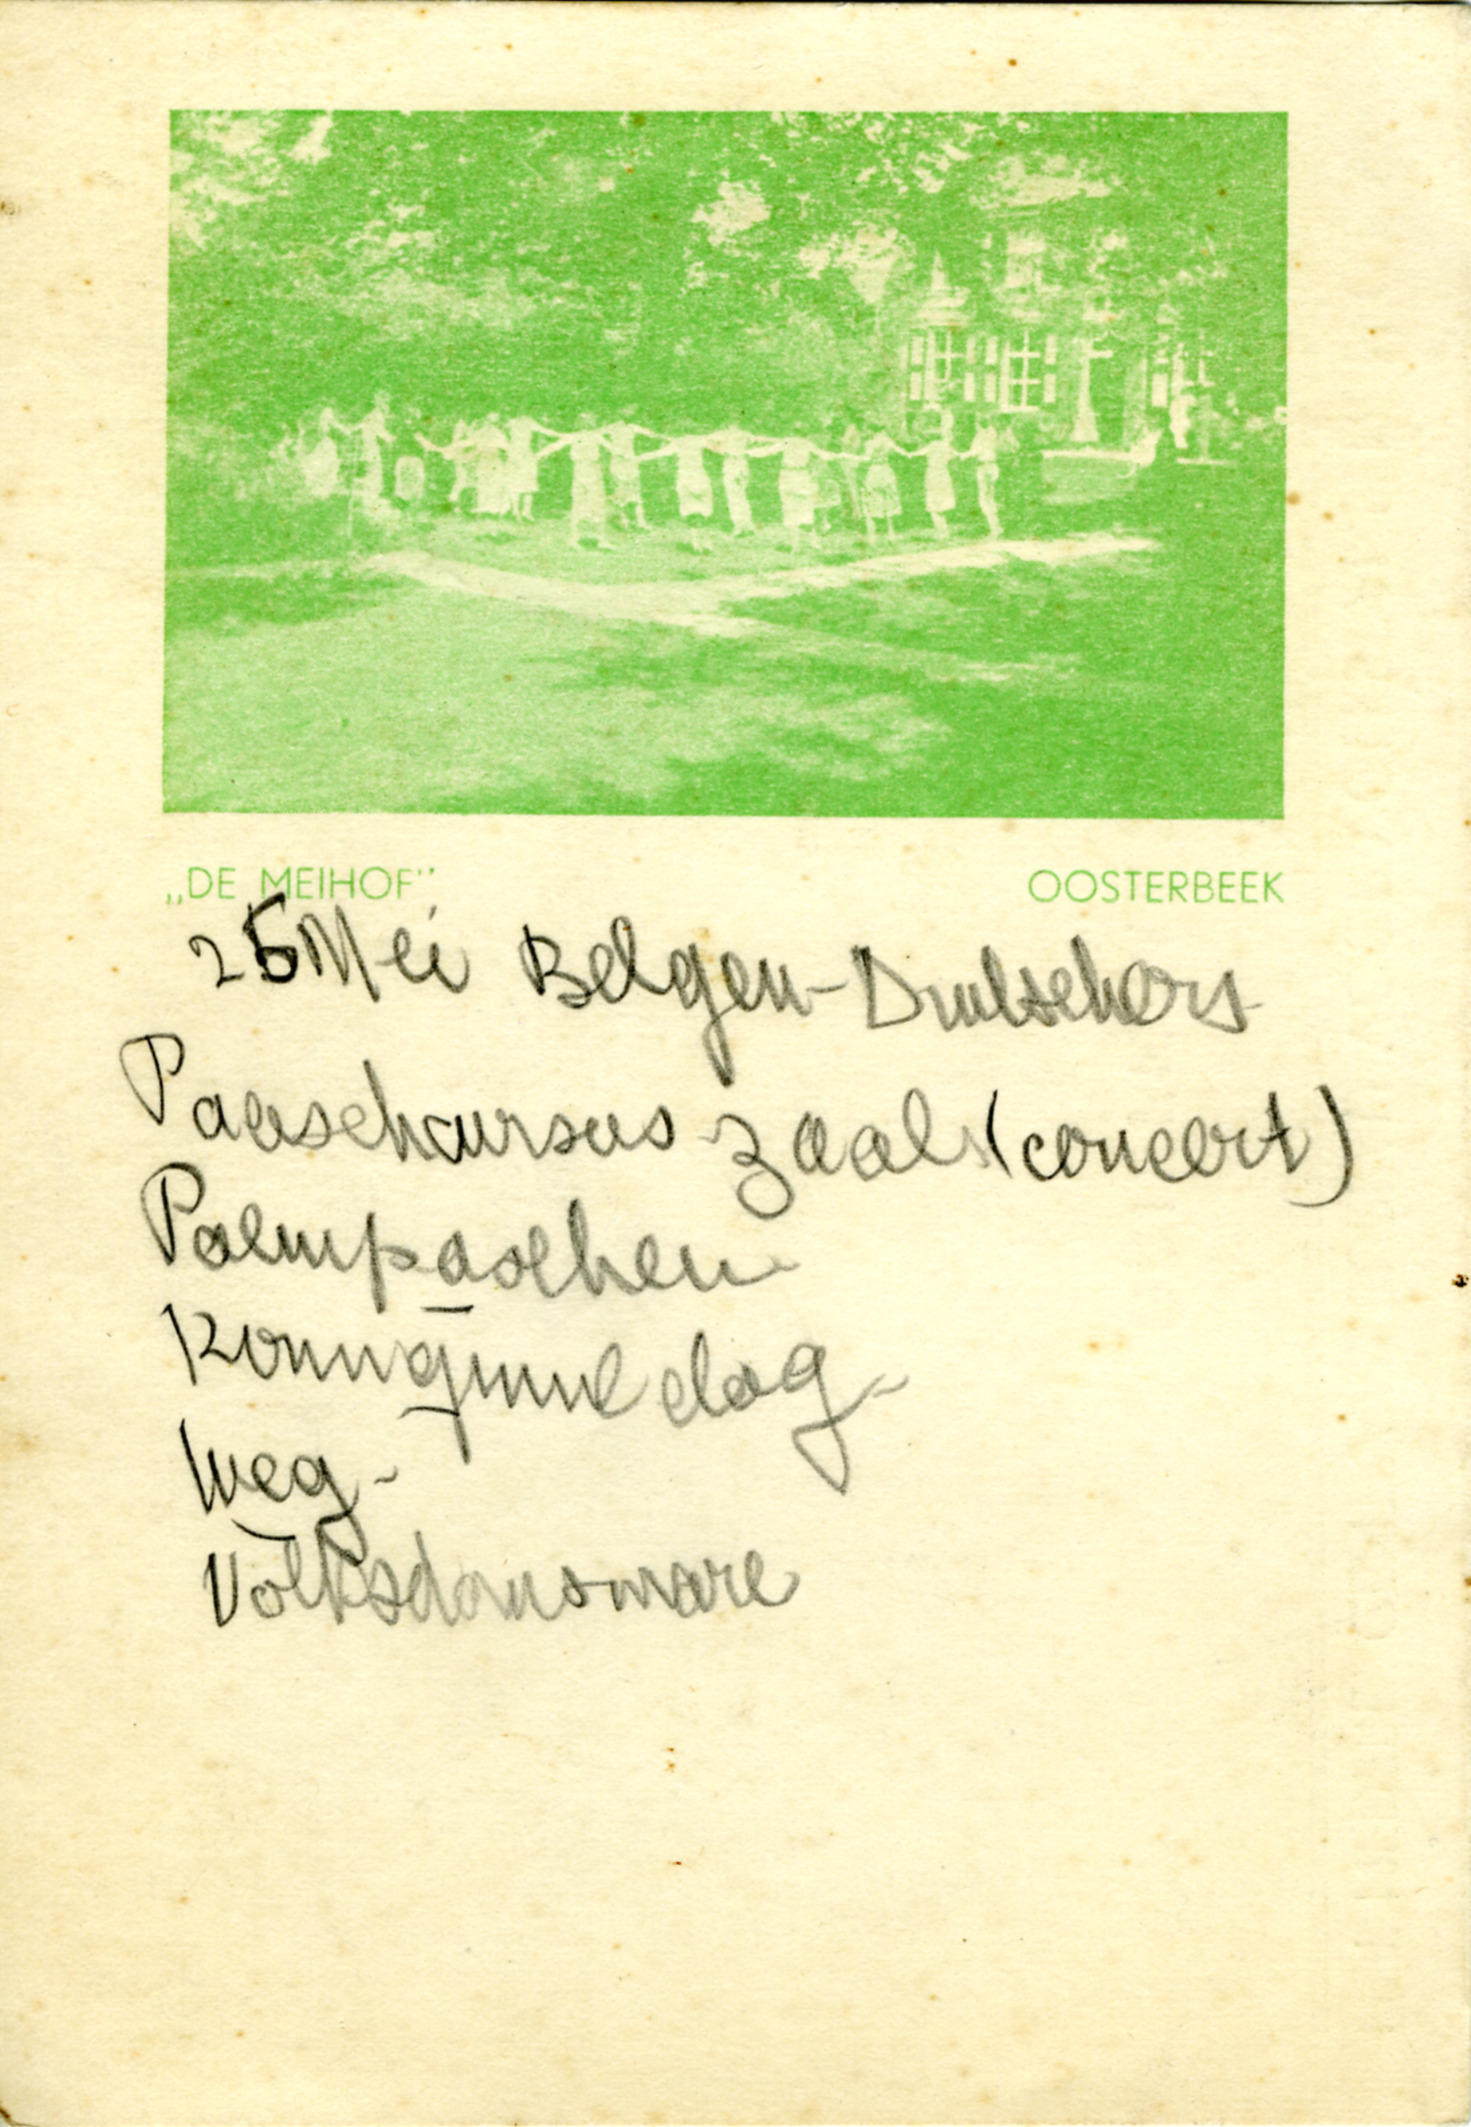 „DE MEIHOF” OOSTERBEEK
25 Mei Belgen-Duitschers
Paaschcursus zaal (concert)
Palmpaschen
weg-
Volksdansmare